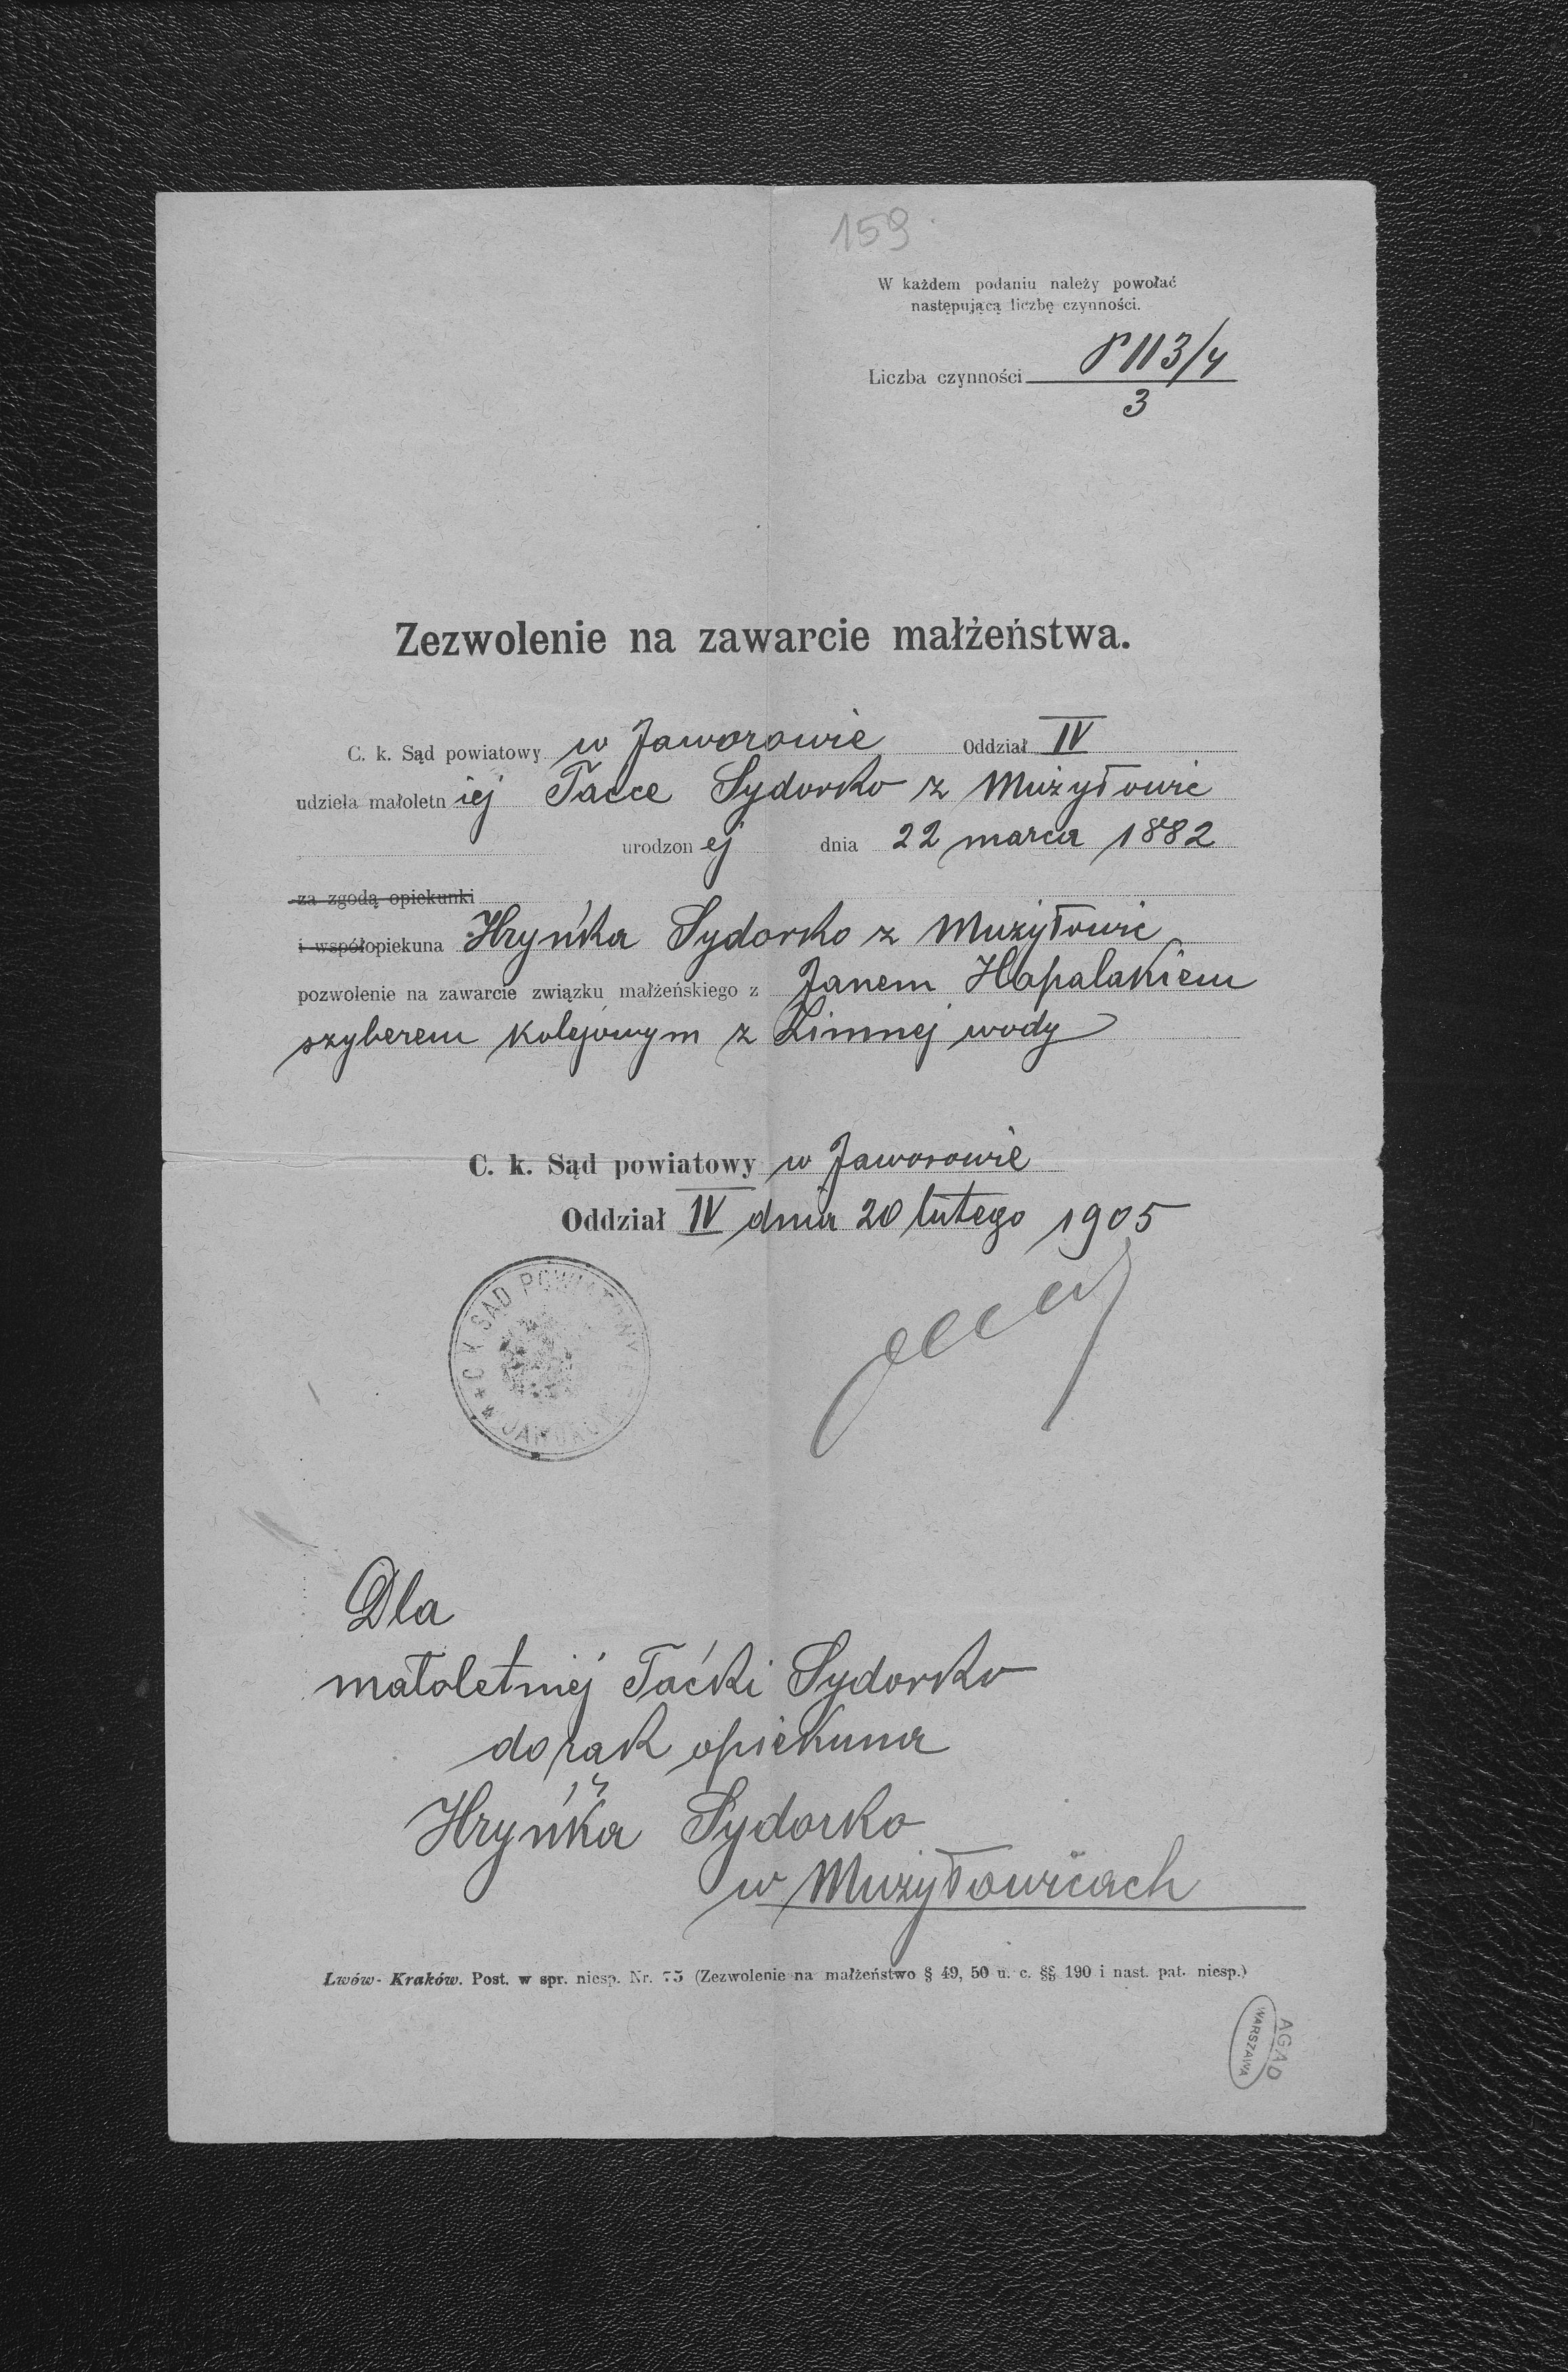 159
W każdem podaniu należy powołać
następującą liczbę czynności.
Liczba czynności P 113/4
3
Zezwolenie na zawarcie małżeństwa.
C. k. Sąd powiatowy w Jaworowie Oddział IV
udziela małoletniej Tacce Sydorko z Mużyłowic
urodzonej dnia 22 marca 1882
za zgodą opiekunki
i współopiekuna Hryńka Sydorko z Mużyłowic
pozwolenie na zawarcie związku małżeńskiego z Janem Hapalakiem
szyberem kolejowym z Zimnej wody
C. k. Sąd powiatowy w Jaworowie
Oddział IV dnia 20 lutego 1905
C. K. SĄD POWIATOWY
Dla
małoletniej Taćki Sydorko
do rąk opiekuna
Hryńka Sydorko
w Mużyłowicach
Lwów-Kraków. Post. w spr. niesp. Nr. 75 (Zezwolenie na małżeństwo § 49, 50 u. c. §§ 190 i nast. pat. niesp.)
AGAD
WARSZAWA